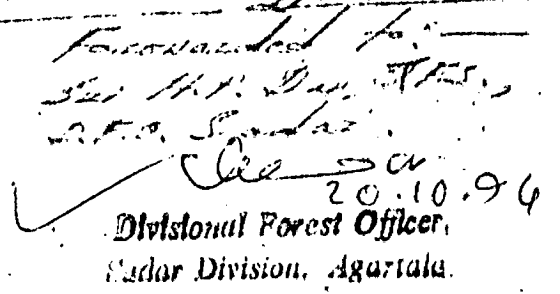 Forwarded to:—
Sri M.K. Dey, TFS,
D.F.O. Sadar.
20.10.94
Divisional Forest Officer,
Sadar Division, Agartala.